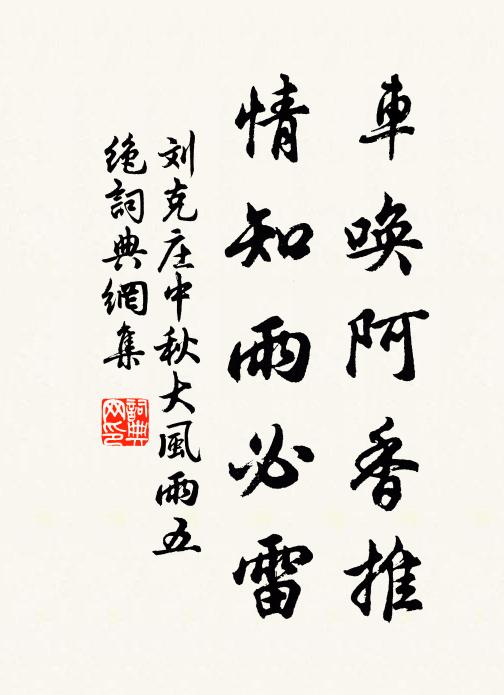 車唤阿香推
情知雨必雷
刘克庄中秋大風雨五
绝詞典網集
詞典
网印